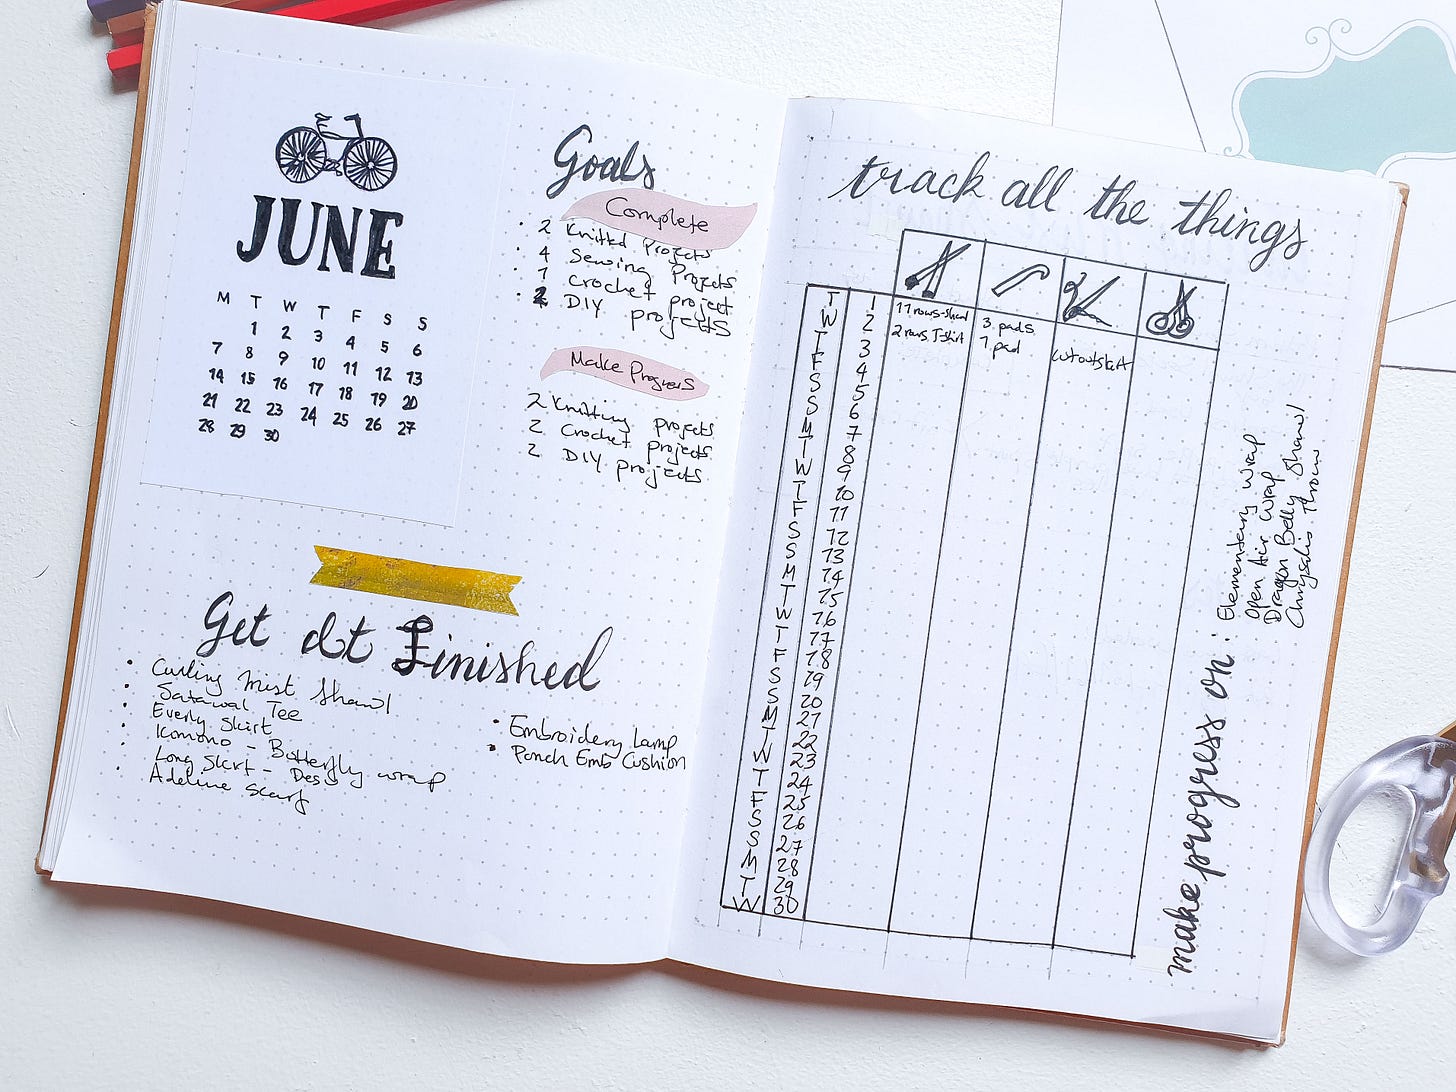 JUNE
M T W T F S S
1 2 3 4 5 6
7 8 9 10 11 12 13
14 15 16 17 18 19 20
21 22 23 24 25 26 27
28 29 30
Goals
Complete
• 2 Knitted Projects
• 4 Sewing Projects
• 1 Crochet project
• 2 DIY projects
Make Progress
2 Knitting projects
2 Crochet projects
2 DIY projects
Get It Finished
• Curling Mist Shawl
• Satawal Tee
• Everly Skirt
• Komono - Butterfly wrap
• Long Skirt -
• Adeline Scarf
• Embroidery Lamp
• Punch Emb Cushion
track all the things
T 1 11 rows-shawl 3 pads
W 2 2 rows T-shirt 1 pad
T 3 cut out skirt
F 4
S 5
S 6
M 7
T 8
W 9
T 10
F 11
S 12
S 13
M 14
T 15
W 16
T 17
F 18
S 19
S 20
M 21
T 22
W 23
T 24
F 25
S 26
S 27
M 28
T 29
W 30
make progress on:
Elementary Wrap
Open Air Wrap
Dragon Belly Shawl
Chrysalis Throw